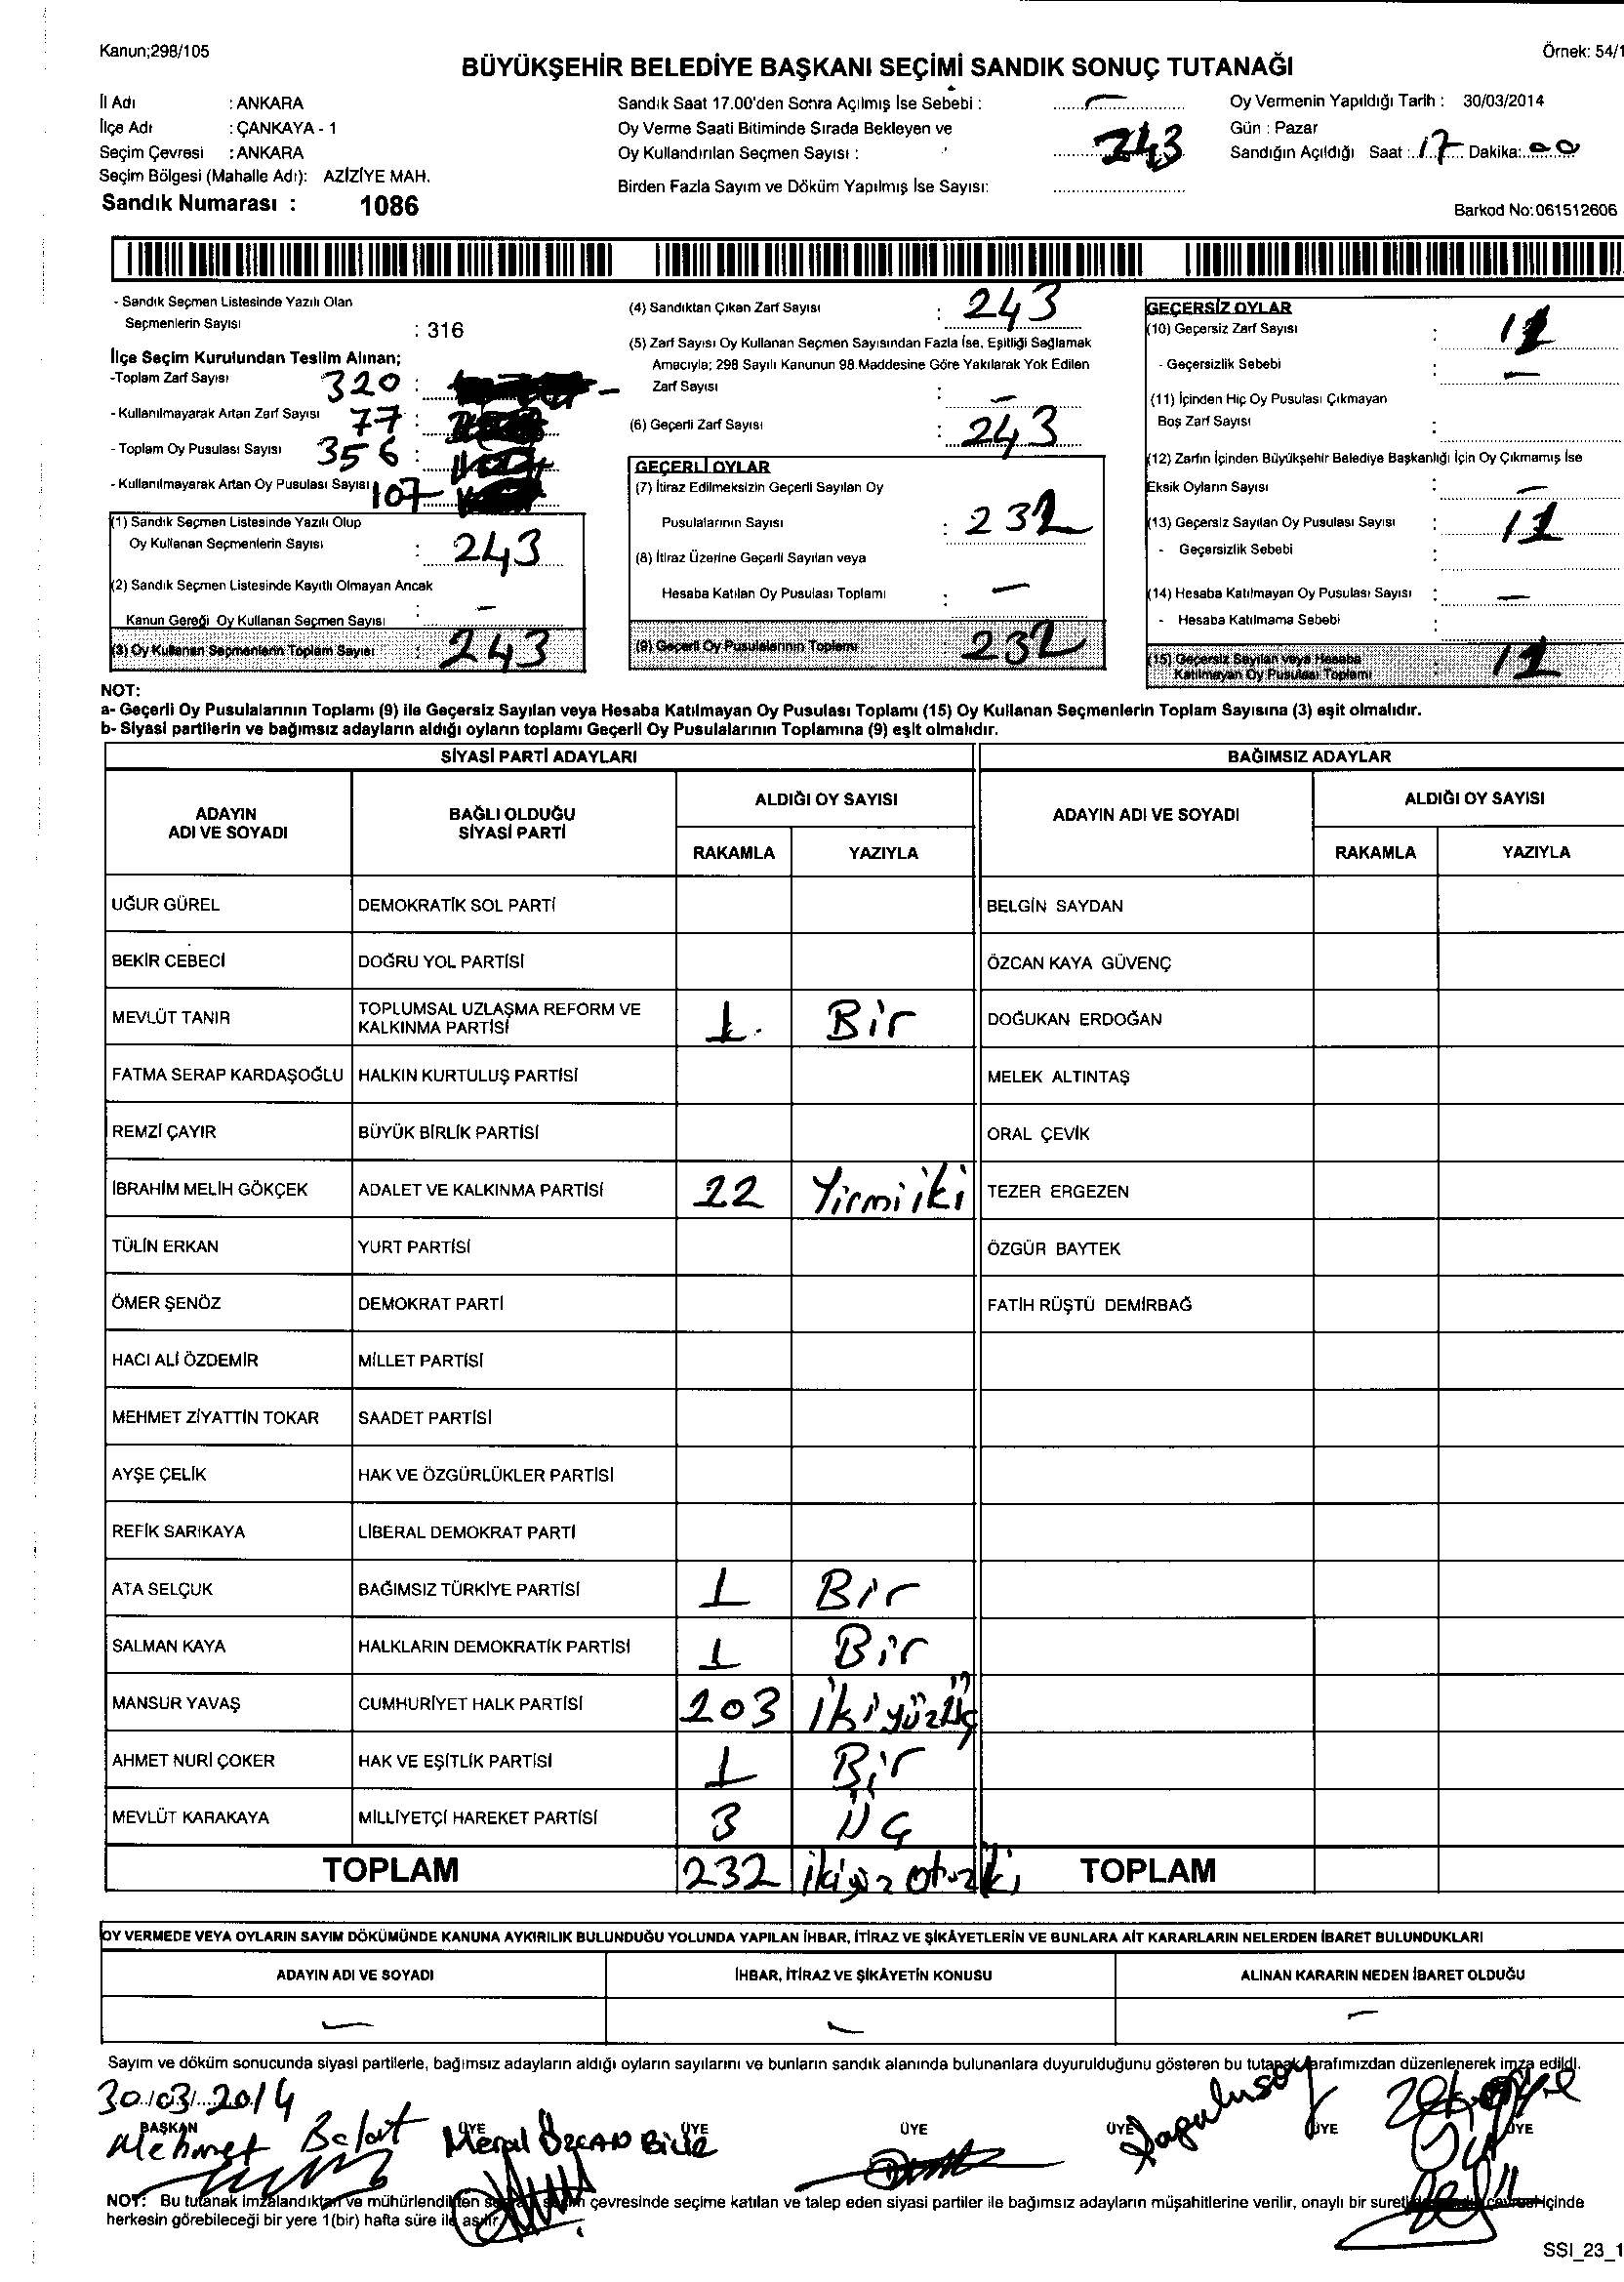 Kanun;298/105
Örnek: 54/1
BÜYÜKŞEHİR BELEDİYE BAŞKANI SEÇİMİ SANDIK SONUÇ TUTANAĞI
İl Adı : ANKARA
İlçe Adı : ÇANKAYA - 1
Seçim Çevresi : ANKARA
Seçim Bölgesi (Mahalle Adı): AZİZİYE MAH.
Sandık Numarası : 1086
Sandık Saat 17.00'den Sonra Açılmış İse Sebebi : —
Oy Verme Saati Bitiminde Sırada Bekleyen ve
Oy Kullandırılan Seçmen Sayısı : 243
Birden Fazla Sayım ve Döküm Yapılmış İse Sayısı:
Oy Vermenin Yapıldığı Tarih : 30/03/2014
Gün : Pazar
Sandığın Açıldığı Saat : 17 Dakika: 00
Barkod No:061512606
- Sandık Seçmen Listesinde Yazılı Olan
Seçmenlerin Sayısı : 316
İlçe Seçim Kurulundan Teslim Alınan;
-Toplam Zarf Sayısı 320 :
- Kullanılmayarak Artan Zarf Sayısı 77 :
- Toplam Oy Pusulası Sayısı 356 :
- Kullanılmayarak Artan Oy Pusulası Sayısı 107
(1) Sandık Seçmen Listesinde Yazılı Olup
Oy Kullanan Seçmenlerin Sayısı : 243
(2) Sandık Seçmen Listesinde Kayıtlı Olmayan Ancak
Kanun Gereği Oy Kullanan Seçmen Sayısı : —
(3) Oy Kullanan Seçmenlerin Toplam Sayısı : 243
(4) Sandıktan Çıkan Zarf Sayısı : 243
(5) Zarf Sayısı Oy Kullanan Seçmen Sayısından Fazla İse, Eşitliği Sağlamak
Amacıyla; 298 Sayılı Kanunun 98.Maddesine Göre Yakılarak Yok Edilen
Zarf Sayısı : —
(6) Geçerli Zarf Sayısı : 243
GEÇERLİ OYLAR
(7) İtiraz Edilmeksizin Geçerli Sayılan Oy
Pusulalarının Sayısı : 232
(8) İtiraz Üzerine Geçerli Sayılan veya
Hesaba Katılan Oy Pusulası Toplamı : —
(9) Geçerli Oy Pusulalarının Toplamı : 232
GEÇERSİZ OYLAR
(10) Geçersiz Zarf Sayısı : 11
- Geçersizlik Sebebi : —
(11) İçinden Hiç Oy Pusulası Çıkmayan
Boş Zarf Sayısı :
(12) Zarfın İçinden Büyükşehir Belediye Başkanlığı İçin Oy Çıkmamış İse
Eksik Oyların Sayısı : —
(13) Geçersiz Sayılan Oy Pusulası Sayısı : 11
- Geçersizlik Sebebi :
(14) Hesaba Katılmayan Oy Pusulası Sayısı : —
- Hesaba Katılmama Sebebi :
(15) Geçersiz Sayılan veya Hesaba
Katılmayan Oy Pusulası Toplamı : 11
NOT:
a- Geçerli Oy Pusulalarının Toplamı (9) ile Geçersiz Sayılan veya Hesaba Katılmayan Oy Pusulası Toplamı (15) Oy Kullanan Seçmenlerin Toplam Sayısına (3) eşit olmalıdır.
b- Siyasi partilerin ve bağımsız adayların aldığı oyların toplamı Geçerli Oy Pusulalarının Toplamına (9) eşit olmalıdır.
SİYASİ PARTİ ADAYLARI BAĞIMSIZ ADAYLAR
ADAYIN ADI VE SOYADI BAĞLI OLDUĞU SİYASİ PARTİ ALDIĞI OY SAYISI ADAYIN ADI VE SOYADI ALDIĞI OY SAYISI
RAKAMLA YAZIYLA RAKAMLA YAZIYLA
UĞUR GÜREL DEMOKRATİK SOL PARTİ BELGİN SAYDAN
BEKİR CEBECİ DOĞRU YOL PARTİSİ ÖZCAN KAYA GÜVENÇ
MEVLÜT TANIR TOPLUMSAL UZLAŞMA REFORM VE KALKINMA PARTİSİ 1 Bir DOĞUKAN ERDOĞAN
FATMA SERAP KARDAŞOĞLU HALKIN KURTULUŞ PARTİSİ MELEK ALTINTAŞ
REMZİ ÇAYIR BÜYÜK BİRLİK PARTİSİ ORAL ÇEVİK
İBRAHİM MELİH GÖKÇEK ADALET VE KALKINMA PARTİSİ 22 Yirmi iki TEZER ERGEZEN
TÜLİN ERKAN YURT PARTİSİ ÖZGÜR BAYTEK
ÖMER ŞENÖZ DEMOKRAT PARTİ FATİH RÜŞTÜ DEMİRBAĞ
HACI ALİ ÖZDEMİR MİLLET PARTİSİ
MEHMET ZİYATTİN TOKAR SAADET PARTİSİ
AYŞE ÇELİK HAK VE ÖZGÜRLÜKLER PARTİSİ
REFİK SARIKAYA LİBERAL DEMOKRAT PARTİ
ATA SELÇUK BAĞIMSIZ TÜRKİYE PARTİSİ 1 Bir
SALMAN KAYA HALKLARIN DEMOKRATİK PARTİSİ 1 Bir
MANSUR YAVAŞ CUMHURİYET HALK PARTİSİ 203 ikiyüzüç
AHMET NURİ ÇOKER HAK VE EŞİTLİK PARTİSİ 1 Bir
MEVLÜT KARAKAYA MİLLİYETÇİ HAREKET PARTİSİ 3 Üç
TOPLAM 232 ikiyüz otuziki TOPLAM
OY VERMEDE VEYA OYLARIN SAYIM DÖKÜMÜNDE KANUNA AYKIRILIK BULUNDUĞU YOLUNDA YAPILAN İHBAR, İTİRAZ VE ŞİKÂYETLERİN VE BUNLARA AİT KARARLARIN NELERDEN İBARET BULUNDUKLARI
ADAYIN ADI VE SOYADI İHBAR, İTİRAZ VE ŞİKÂYETİN KONUSU ALINAN KARARIN NEDEN İBARET OLDUĞU
— — —
Sayım ve döküm sonucunda siyasi partilerle, bağımsız adayların aldığı oyların sayılarını ve bunların sandık alanında bulunanlara duyurulduğunu gösteren bu tutanak tarafımızdan düzenlenerek imza edildi.
30/03/2014
BAŞKAN ÜYE ÜYE ÜYE ÜYE ÜYE ÜYE
Mehmet Bolat Meral ÖZCAN
NOT: Bu tutanak imzalandıktan ve mühürlendikten çevresinde seçime katılan ve talep eden siyasi partiler ile bağımsız adayların müşahitlerine verilir, onaylı bir sureti içinde
herkesin görebileceği bir yere 1(bir) hafta süre ile asılır.
SSI_23_1